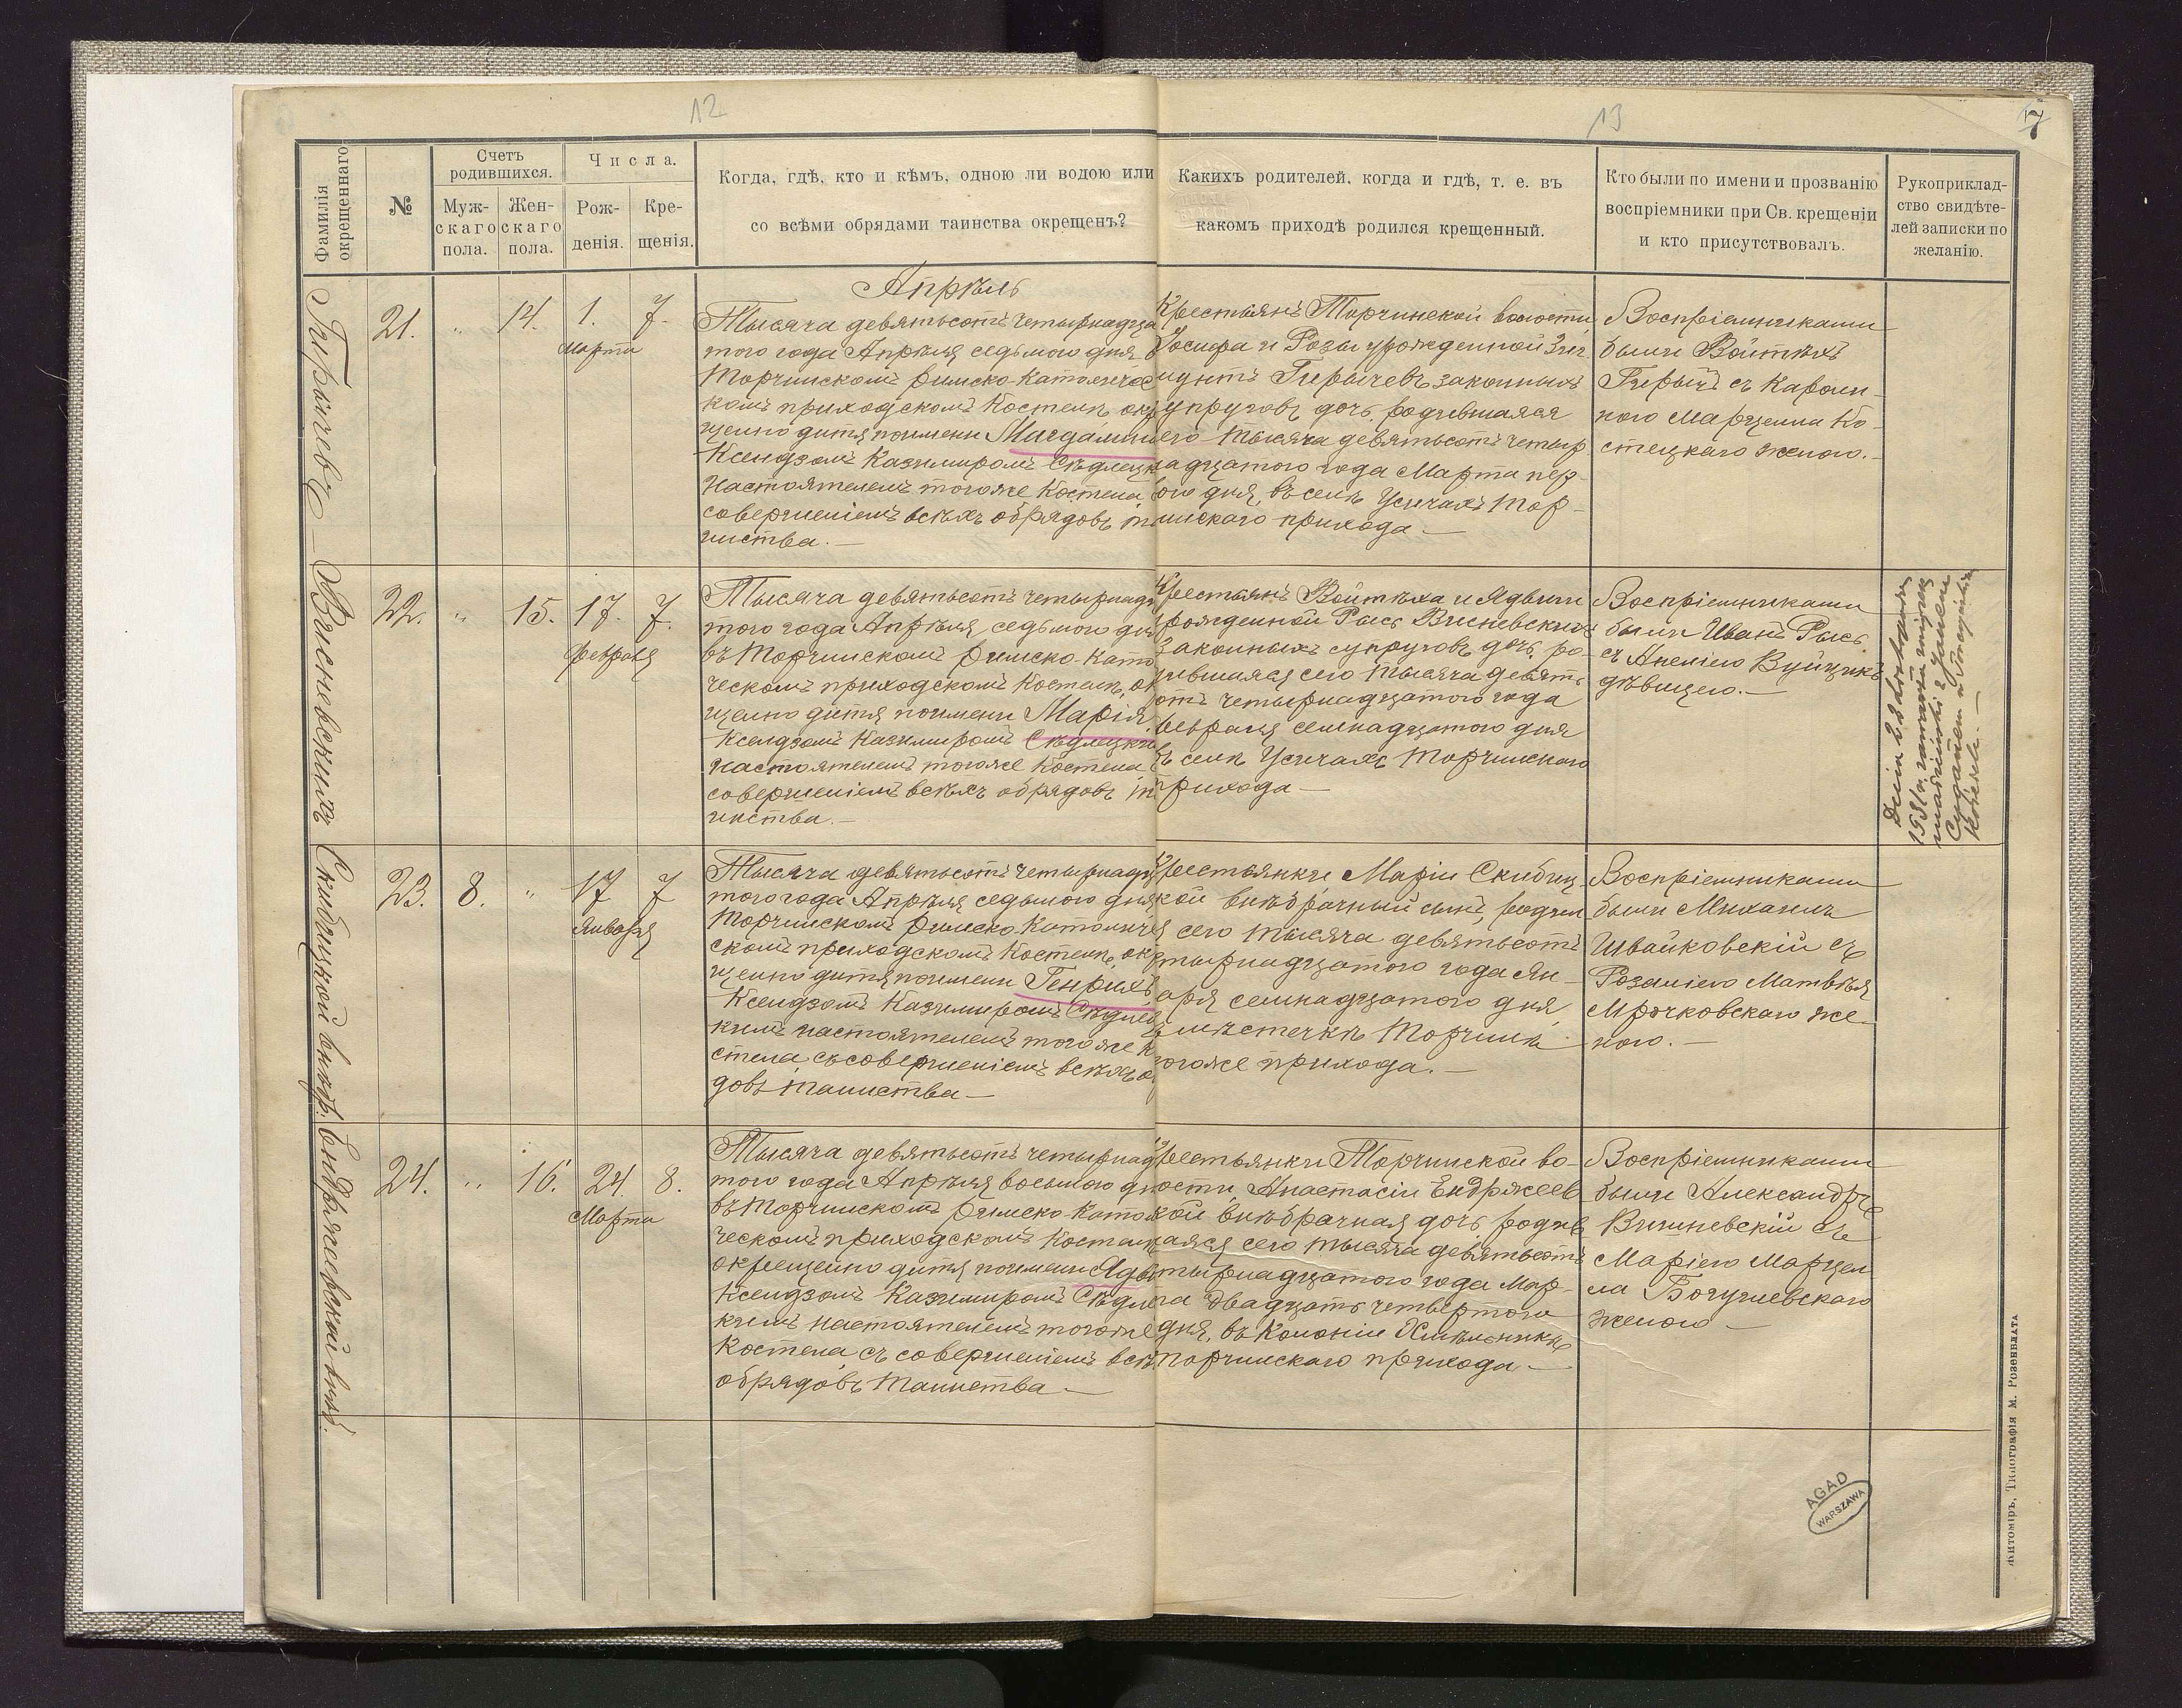 12
13
7
Фамилія окрещеннаго
№
Счетъ родившихся.
Муж-
скаго
пола.
Жен-
скаго
пола.
Числа.
Рож-
денія.
Кре-
щенія.
Когда, гдѣ, кто и кѣмъ, одною ли водою или
со всѣми обрядами таинства окрещенъ?
Какихъ родителей, когда и гдѣ, т. е. въ
какомъ приходѣ родился крещенный.
Кто были по имени и прозванію
воспріемники при Св. крещеніи
и кто присутствовалъ.
Рукоприклад-
ство свидѣте-
лей записки по
желанію.
Гирычевъ
21.
"
14.
1.
Марта
7.
Апрѣль
Тысяча девятьсотъ четырнадца
того года Апрѣля седьмого дня
Торчинскомъ римско-католичес
комъ приходскомъ Костелѣ окр
щено дитя по имени Магдалин
Ксендзомъ Казимиромъ Сѣдлецк
Настоятелемъ тогоже Костела
совершеніемъ всѣхъ обрядовъ та
инства.—
Крестьянъ Торчинской волости
Іосифа и Розы урожденной
Гирычевъ законныхъ
супруговъ дочь, родившаяся
сего тысяча девятьсотъ четыр
надцатого года Марта пер-
вого дня, въ селѣ Усичахъ Тор-
чинскаго прихода—
Воспріемниками
были Войтѣхъ
Гирычъ съ Кароли-
ною Марцелла Ко-
стецкаго женою.—
Висневскихъ
22.
"
15.
17.
февраля
7.
Тысяча девятьсотъ четырнадц
того года Апрѣля седьмого дня
въ Торчинскомъ римско-като
ческомъ приходскомъ Костелѣ, ок
щено дитя по имени Марія
Ксендзомъ Казимиромъ Сѣдлецки
настоятелемъ тогоже Костела
совершеніемъ всѣхъ обрядовъ та
инства.—
Крестьянъ Войтѣха и Ядвиги
рожденной Рысь Висневскихъ
законныхъ супруговъ дочь, ро-
дившаяся сего тысяча девять
сотъ четырнадцатого года
Февраля семнадцатого дня
въ селѣ Усичахъ Торчинского
прихода—
Воспріемниками
были Иванъ Рысь
съ Анеліею Вуйцикъ
дѣвицею.—
Dnia 28 listopada
małżeński z Janem
Скибицкой внѣбр.
23.
8.
"
17
Января
7
Тысяча девятьсотъ четырнадц
того года Апрѣля седьмого дня
Торчинскомъ римско-католиче
скомъ приходскомъ Костелѣ, окр
щено дитя по имени Генрихъ
Ксендзомъ Казимиромъ Сѣдлец
кимъ настоятелемъ тогоже К
стела, съ совершеніемъ всѣхъ об
довъ таинства—
Крестьянки Маріи Скибиц-
кой внѣбрачный сынъ, родил
ся сего тысяча девятьсотъ
тырнадцатого года Ян-
аря семнадцатого дня,
въ мѣстечкѣ Торчинѣ
тогоже прихода.—
Воспріемниками
были Михаилъ
Швайковскій съ
Розаліею Матвѣя
Мрочковскаго же-
ною.—
Ендржеевской внѣб.
24.
"
16.
24.
Марта
8.
Тысяча девятьсотъ четырнад
того года Апрѣля восьмого дн
въ Торчинскомъ римско-като
ческомъ приходскомъ Костелѣ
окрещено дитя по имени Ядви
Ксендзомъ Казимиромъ Сѣдле
кимъ настоятелемъ тогоже
Костела, съ совершеніемъ всѣ
обрядовъ таинства—
Крестьянки Торчинской во-
лости, Анастасіи Ендржеев
кой внѣбрачная дочь, родив
шаяся сего тысяча девятьсотъ
тырнадцатого года Мар-
та двадцать четвертого
дня, въ колоніи Хмѣльникъ
Торчинскаго прихода—
Воспріемниками
были Александръ
Вишневскій съ
Маріею Марцел-
ла Богушевскаго
женою—
AGAD
WARSZAWA
Житоміръ, Типографія М. Розенблата